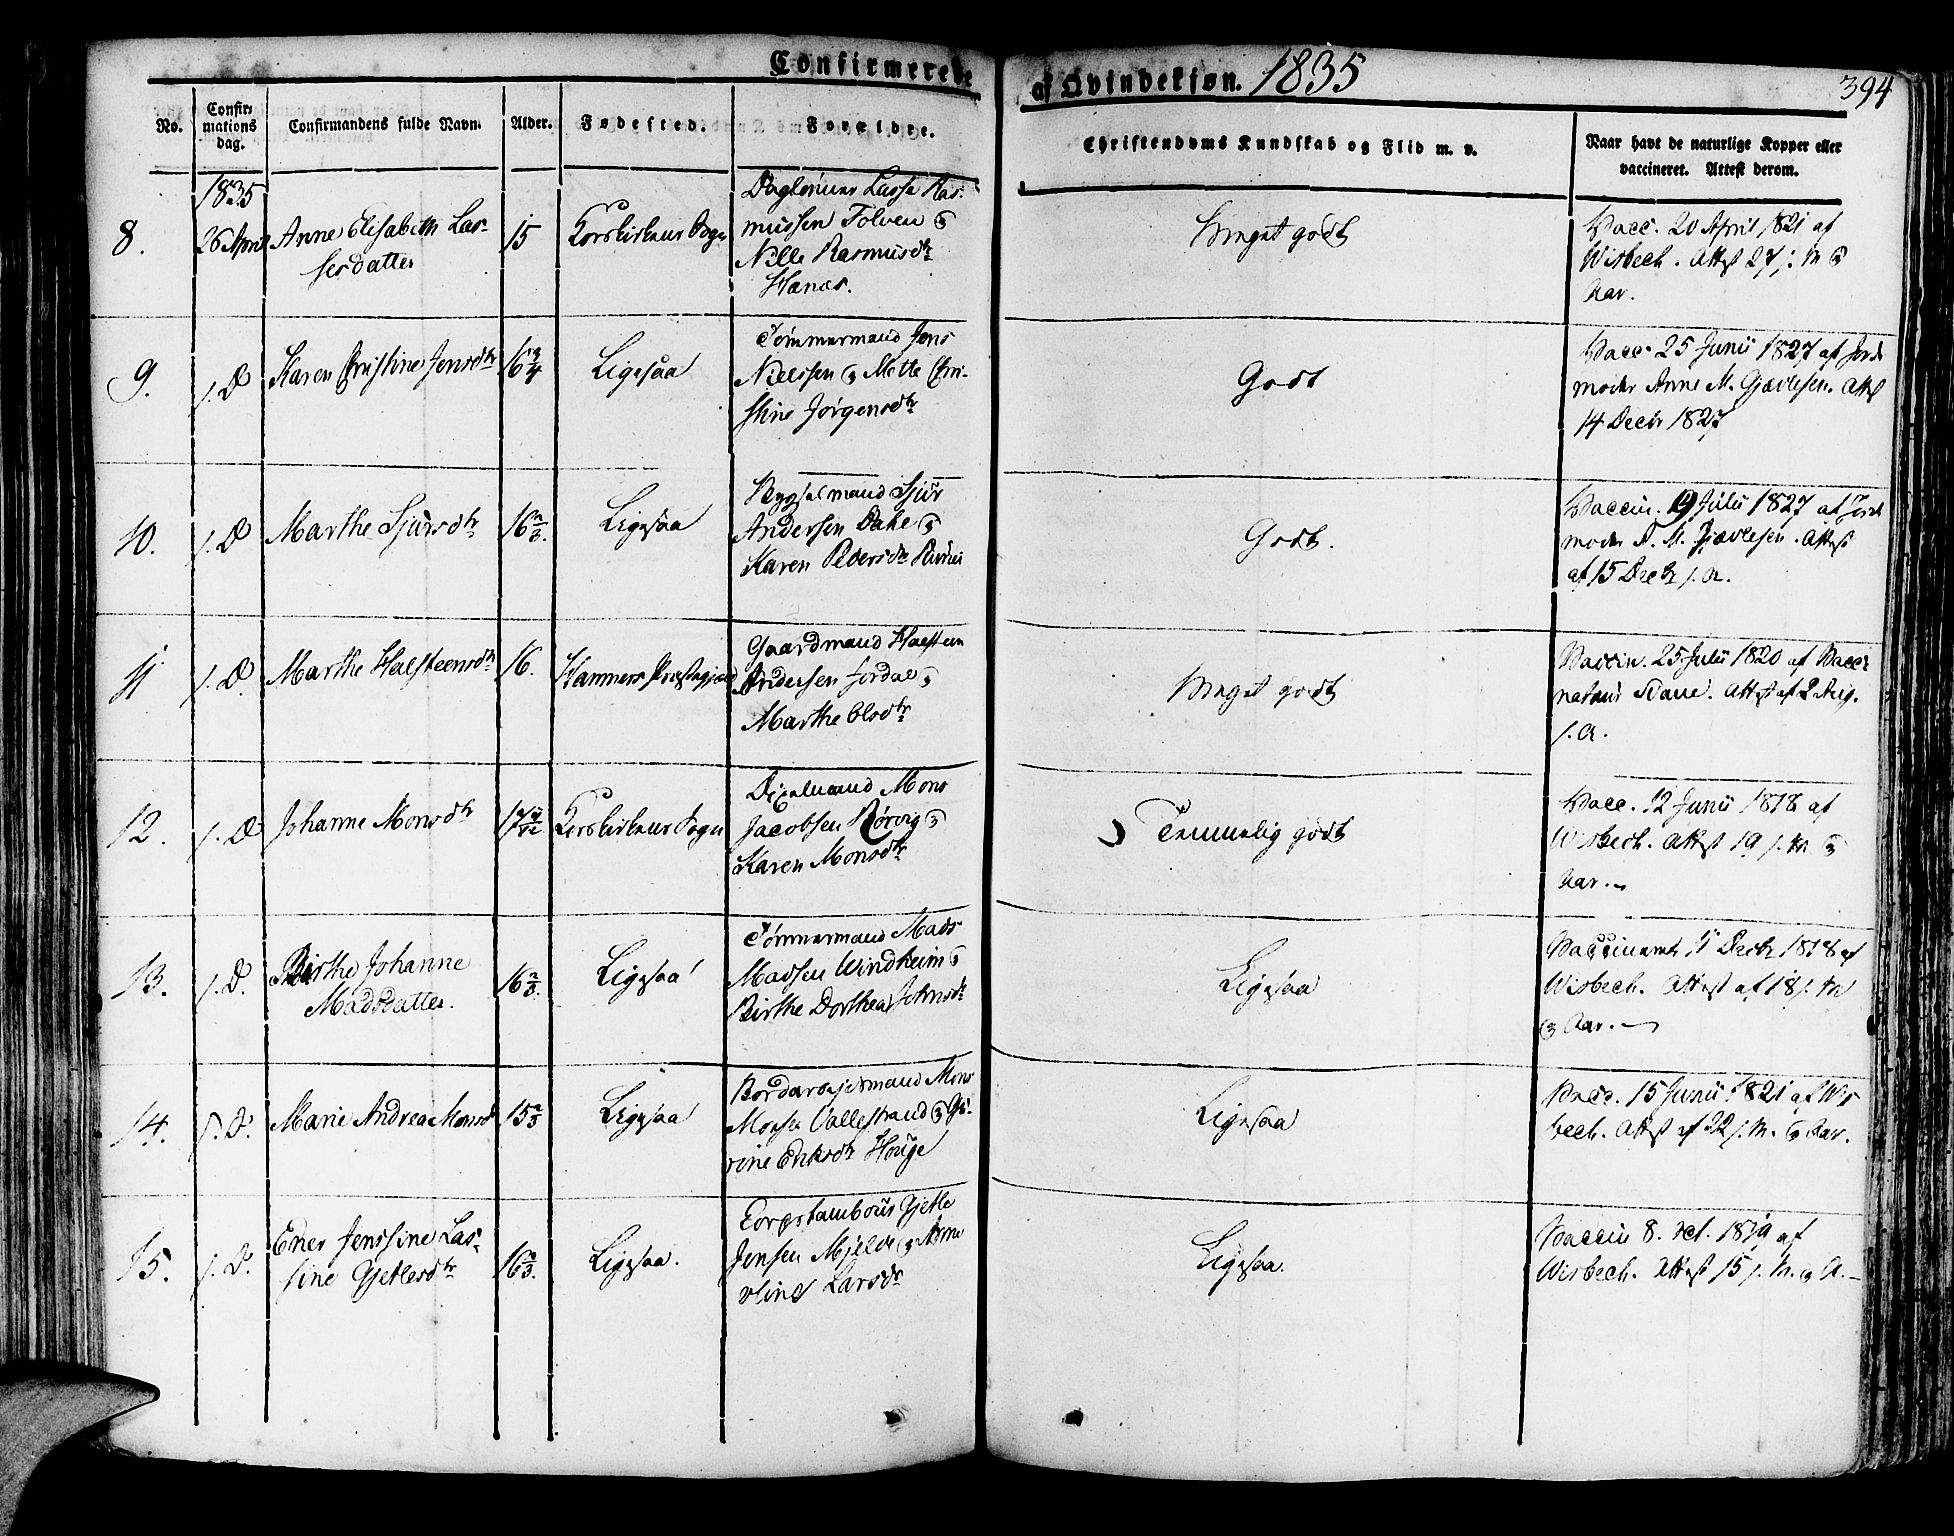 Confirmerede af Qvindekjøn. 1835
394
No.
Confir-
mations
dag.
Confirmandens fulde Navn.
Alder.
Fødested.
Forældre.
Christendoms Kundskab og Flid m. v.
Naar havt de naturlige Kopper eller
vaccineret. Attest derom.
1835
8.
26 April
Anne Elisabeth Las-
sesdatter
15
Korskirkens Sogn
Daglønner Lasse Ras-
mussen Tolven &
Nille Rasmusdtr
Hanæs.
Meget godt
Vacc. 20 April 1821 af
Wisbech. Attest 27 s. M &
Aar.
9.
s. D
Karen Christine Jensdtr
16 3/4
Ligesaa
Tømmermand Jens
Nielssen & Mette Chri-
stine Jørgensdtr
Godt
Vacc 25 Junii 1827 af Jord-
moder Anne M. Gjævlesen. Attest
14 Decbr 1827
10.
s. D
Marthe Sjursdtr
16 2/3.
Ligesaa
Sjur
Andersen Dahe &
Karen Pedersdtr
Godt.
Vaccin. 19 Julii 1827 af Jord-
moder A. M. Gjævlesen. Attest
af 15 Decbr s. A.
11.
s. D.
Marthe Halsteensdtr
16.
Hammers Præstegjæld
Gaardmand Halsteen
Andersen Jordal &
Marthe Olsdtr
Meget godt
Vaccin. 25 Julii 1820 af Vacci-
nateur Attest af 2 Aug.
s. A.
12.
s. D
Johanne Monsdtr
Korskirkens Sogn
Mons
Jacobsen Rørvig &
Karen Monsdtr
Temmelig godt
Vacc. 12 Junii 1818 af
Wisbech. Attest 19 s. M &
Aar.
13.
s. D.
Birthe Johanne
Madsdatter.
16 2/3.
Ligesaa
Tømmermand Mads
Madsen Windheim &
Birthe Dorthea Johnsdtr
Ligesaa
Vaccineret 11 Decbr 1818 af
Wisbech. Attest af 18 s. M
& Aar.
14.
s. D.
Marie Andrea Monsd
15 2/3
Ligesaa
Mons
Monsen Vallestrand &
rine Eriksdtr Houge
Ligesaa
Vacc. 15 Junii 1821 af Wis-
bech. Attest af 22 s. M. & Aar.
15.
s. D.
Enes Jenssine Las-
sine Gjetlesdtr
16 2/3.
Ligesaa.
Corpstambour Gjetle
Jensen Mjelde & Anne
Larsdtr
Ligesaa.
Vaccin 8. oct. 1819 af
Wisbech. Attest 15 s. M. & A.